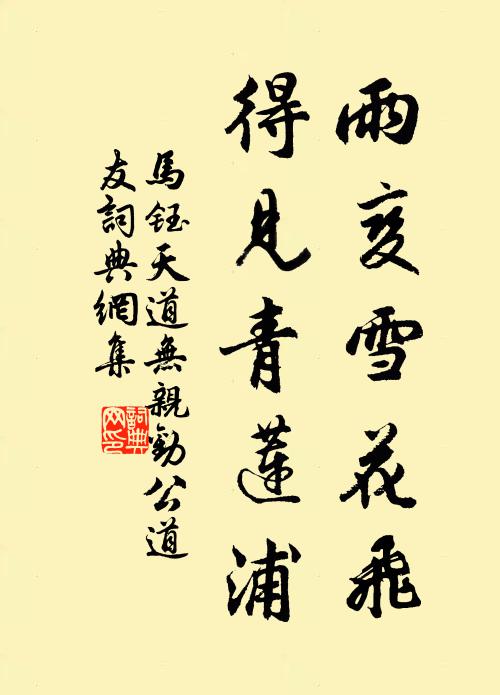 雨变雪花飛
得見青蓮浦
馬鈺天道無親勸公道
友詞典網集
詞典网印